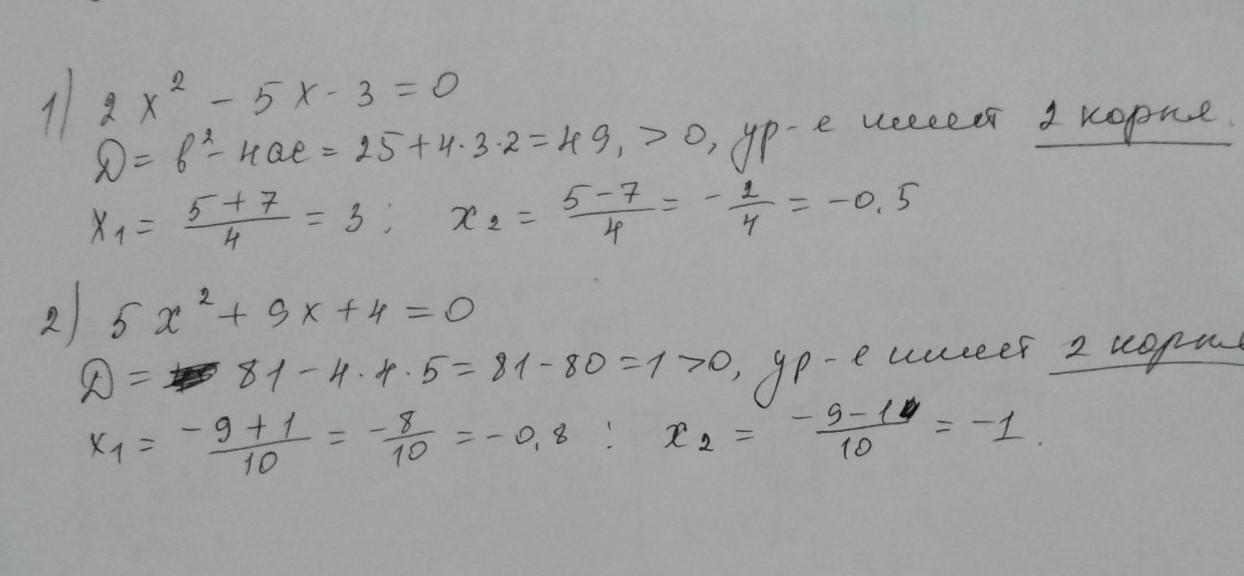 1) 2x² - 5x - 3 = 0
D = b² - 4ac = 25 + 4·3·2 = 49, > 0, ур-е имеет 2 корня.
x₁ = (5 + 7)/4 = 3; x₂ = (5 - 7)/4 = -2/4 = -0.5
2) 5x² + 9x + 4 = 0
D = 81 - 4·4·5 = 81 - 80 = 1 > 0, ур-е имеет 2 корня
x₁ = (-9 + 1)/10 = -8/10 = -0,8; x₂ = (-9 - 1)/10 = -1.